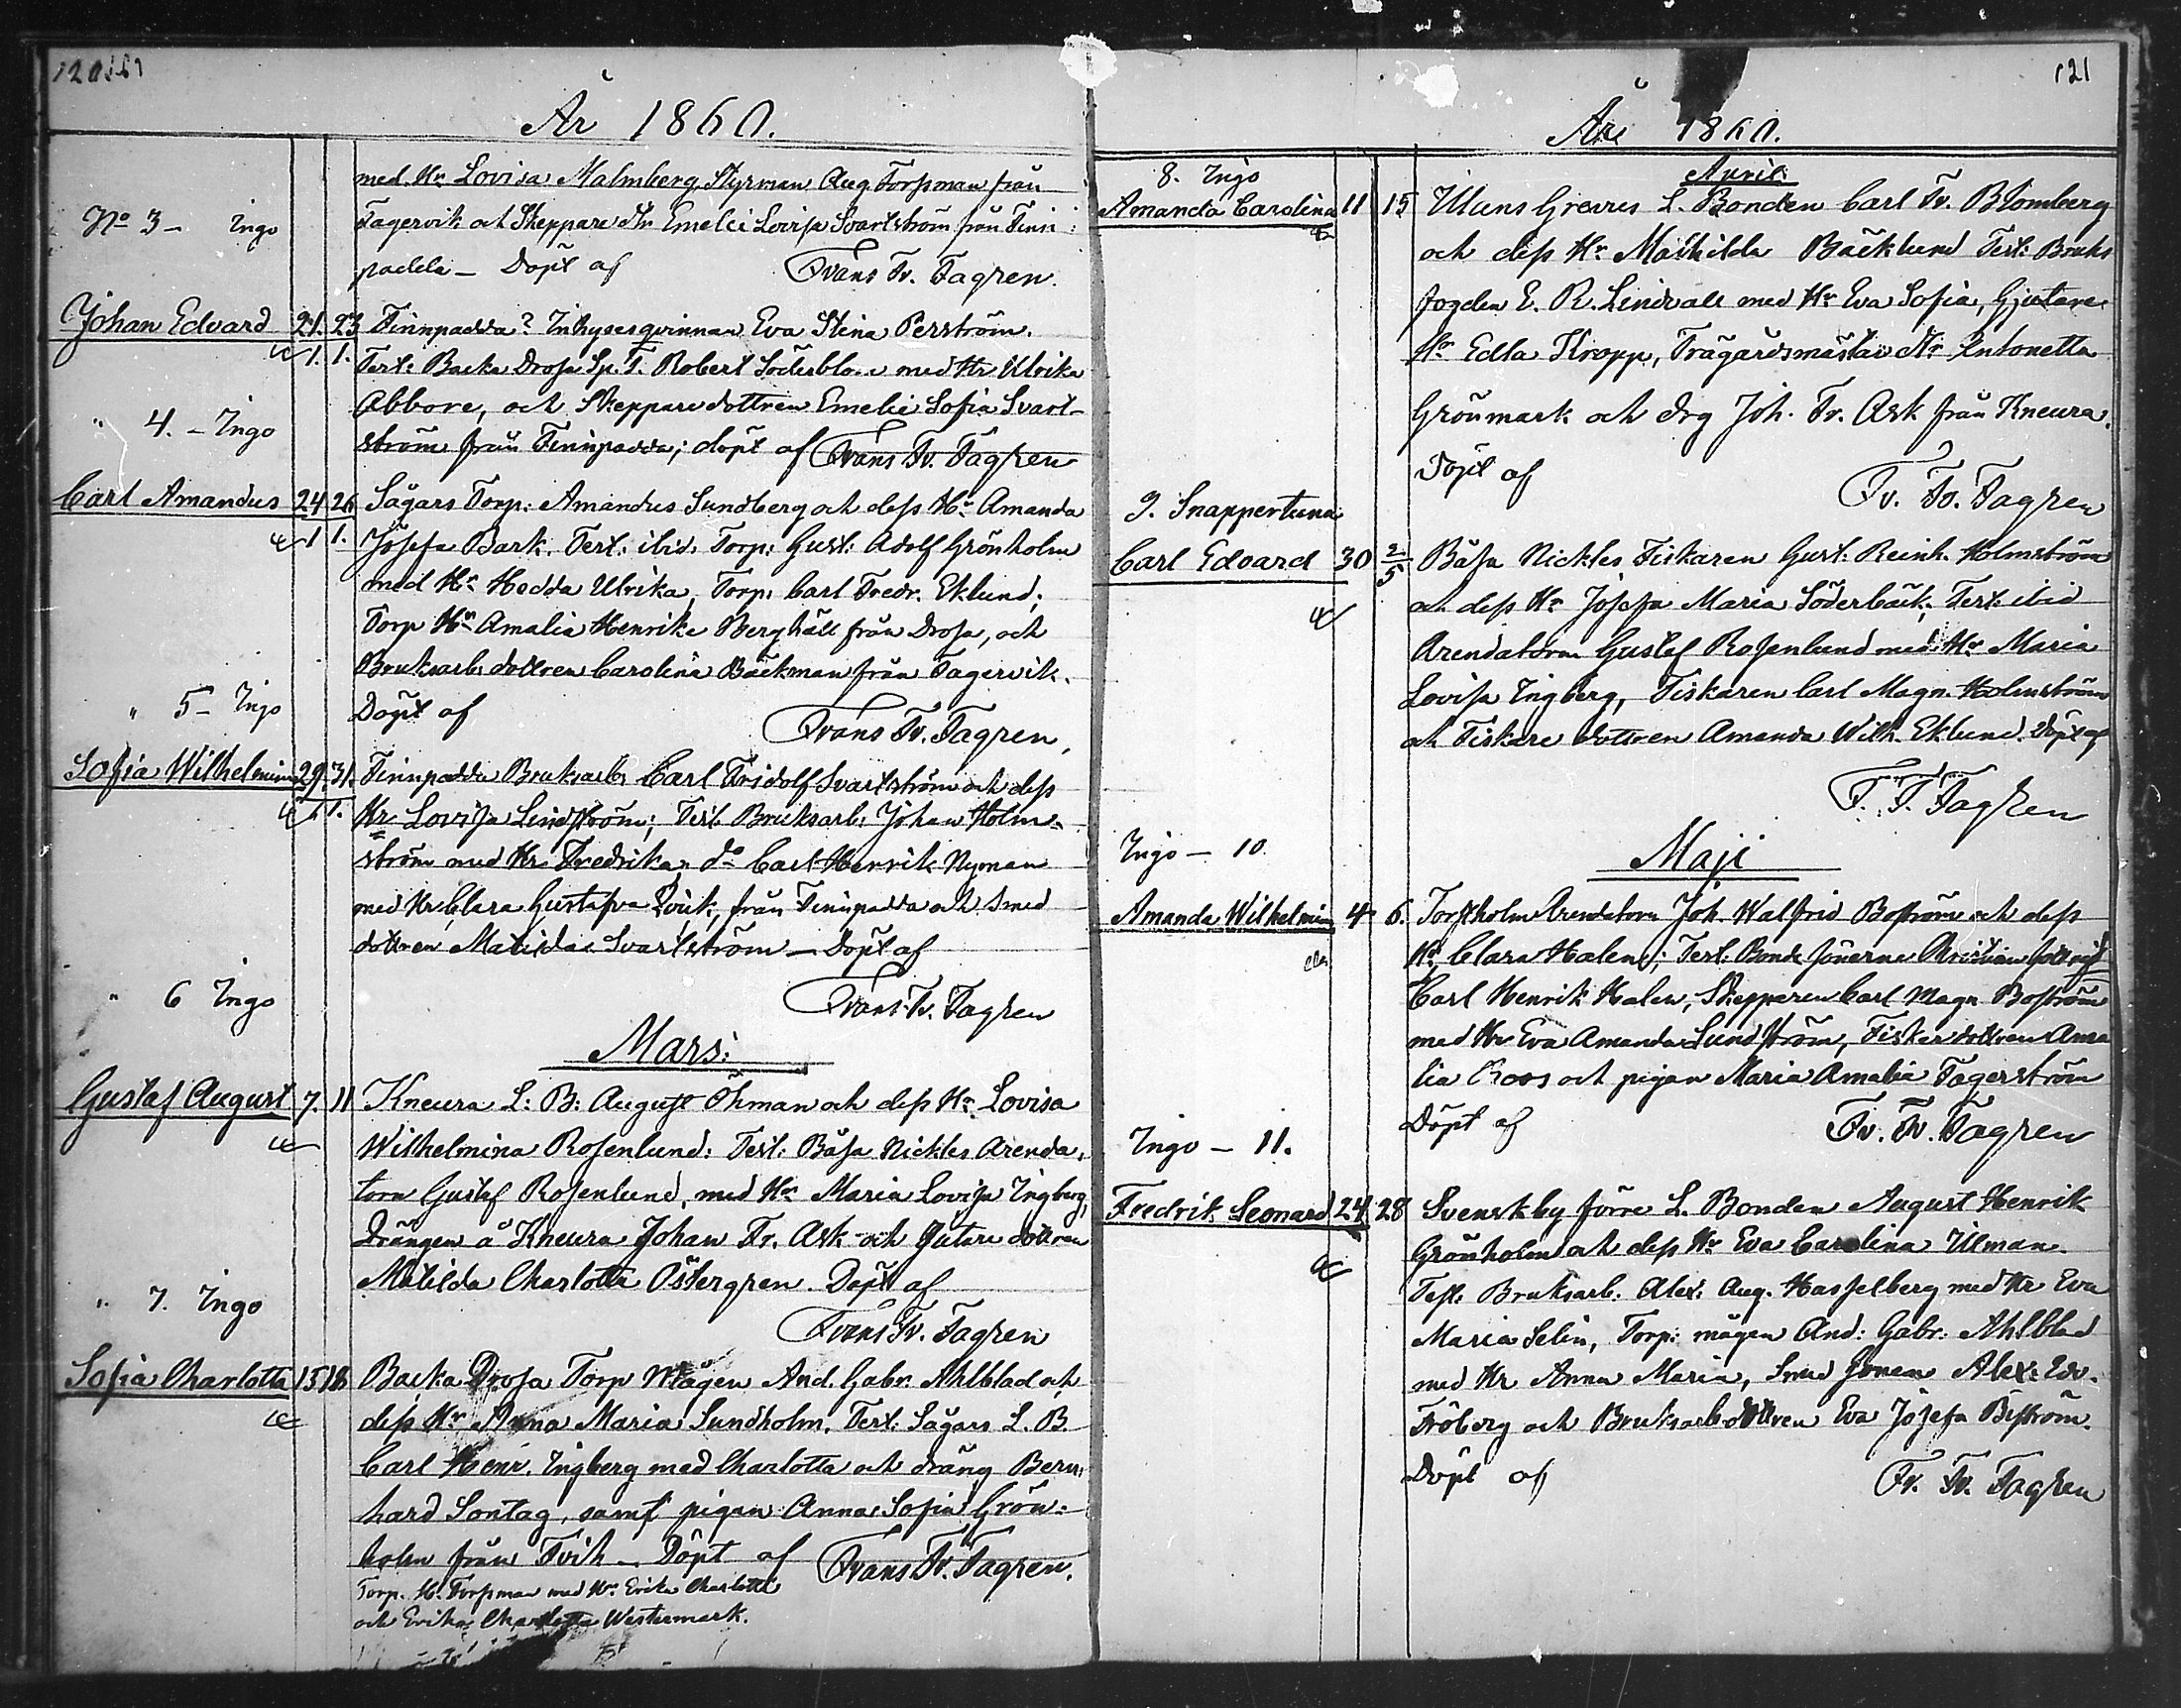 120
År 1860.
med Hr Lovisa Malmberg, Styrman Aug Forsman från
No 3 - Ingo
Fagervik och Skeppare dtr Emelei Lovisa Svartström från Finn-
padda - Döpt af Frans Fr. Fagren.
Johan Edvard 21. 23 Finnpadda? Inhysesqvinnan Eva Stina Perström.
1. 1. Test: Backa Drosa Sp. T. Robert Söderblom med Hr Ulrika
Abbore, och Skepparedottren Emelie Sofia Svart-
" 4. - Ingo
ström från Finnpadda; döpt af Frans Fr. Fagren
Carl Amandus 24 26 Sågars Torp: Amandus Sundberg och dess Hr Amanda
1 1. Josefa Bark. Test: ibid. Torp: Gust: Adolf Grönholm
med Hr Hedda Ulrika, Torp: Carl Fredr. Eklund;
Torp Hr Amalia Henrika Berghäll från Drosa, och
Bruksarb. dottren Carolina Bäckman från Fagervik.
" 5 - Ingo
Döpt af Frans Fr. Fagren,
Sofia Wilhelmina 29. 31. Finnpadda Bruksarb: Carl Fridolf Svartström och dess
1. 1. Hr Lovisa Lindström; Test. Bruksarb: Johan Holm-
ström med Hr Fredrika, do Carl Henrik Nyman
med Hr Clara Gustafva från Finnpadda och Smed
dottren Matilda Svartström - Döpt af
" 6 Ingo
Frans Fr. Fagren
Mars:
Gustaf August 7. 11 Kneura L: B: August Öhman och dess Hr Lovisa
Wilhelmina Rosenlund: Test: Båsa Nickles Arenda-
torn Gustaf Rosenlund, med Hr Maria Lovisa Ingberg,
Drängen å Kneura Johan Fr. Ask och Gjutare dottren
Matilda Charlotta Östergren. Döpt af
" 7. Ingo
Frans Fr. Fagren
Sofia Charlotta 15 18 Backa Drosa Torp Mågen And. Gabr. Ahlblad och
dess Hr Anna Maria Sundholm. Test: Sågars L. B.
Carl Henr. Ingberg med Charlotta och dräng Bern-
hard Sontag, samt pigan Anna Sofia Grön-
holm från Tvih - Döpt af Frans Fr. Fagren.
Torp. H. Forsman med Hr Erika Charlotta
och Erika Charlotta Westermark.
121
År 1860.
8. Ingo
April
Amanda Carolina 11 15 Uluns Greures L. Bonden Carl Fr. Blomberg
och dess Hr Mathilda Bäcklund Test: Bruks
fogden E. R. Lindvall med Hr Eva Sofia, Gjutare
Hr Edla Kropp, Trägårdsmästar dtr Antonetta
Grönmark och drg Joh. Fr. Ask från Kneura.
Döpt af Fr. Fr. Fagren
9. Snappertuna
Carl Edvard 30 2/5 Båsa Nickles Fiskaren Gust: Reinh. Holmström
och dess Hr Josefa Maria Söderbäck; Test: ibid
Arendatorn Gustaf Rosenlund med Hr Maria
Lovisa Ingberg, Fiskaren Carl Magn. Holmström
och Fiskare dottren Amanda Wilh. Eklund. Döpt af
F. F. Fagren
Ingo - 10.
Maji
Amanda Wilhelmina 4 6. Torsholm Arendatorn Joh. Walfrid Boström och dess
Hr Clara Halen; Test: Bonde sönerne Christian
Carl Henrik Halen, Skepparen Carl Magn Boström
med Hr Eva Amanda Sundström, Fiskar dottren Ama-
lia Roos och pigan Maria Amalia Fagerström
Döpt af Fr. Fr. Fagren
Ingo - 11.
Fredrik Leonard 24 28 Svenskby förre L. Bonden August Henrik
Grönholm och dess Hr Eva Carolina Ulman.
Test. Bruksarb. Alex: Aug. Hasselberg med Hr Eva
Maria Selin, Torp: mågen And: Gabr: Ahlblad
med Hr Anna Maria, Smed Sonen Alex: Edv.
Fröberg och Bruksarb dottren Eva Josefa Biström.
Döpt af Fr. Fr. Fagren